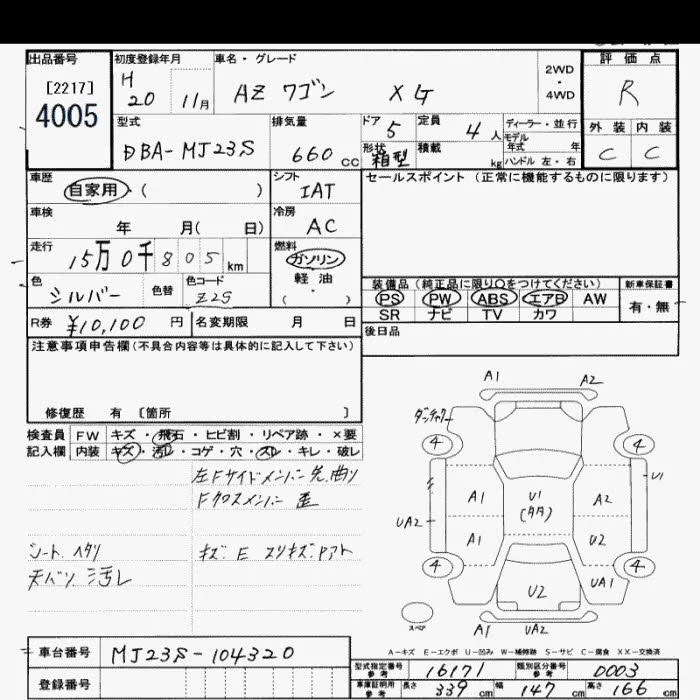 出品番号 初度登録年月 車名・グレード 2WD・4WD 評価点
[2217] 4005
H 20 11月 AZ ワゴン XG R
型式 排気量 ドア 5 定員 4人 ディーラー・並行 外装 内装
DBA-MJ23S 660cc 形状 箱型 積載 kg モデル年式 年式 ハンドル 左・右 C C
車歴 自家用・( ) シフト IAT セールスポイント(正常に機能するものに限ります)
車検 年 月( 日) 冷房 AC
走行 15万0千805km 燃料 ガソリン
軽油・( )
色 シルバー 色替 色コード Z2S
装備品(純正品に限り〇をつけてください) 新車保証書
PS PW ABS エアB AW 有・無
SR ナビ TV カワ
R券 ¥10,100円 名変期限 月 日 後日品
注意事項申告欄(不具合内容等は具体的に記入して下さい)
修復歴 有 〔箇所 〕
検査員 FW キズ・飛石・ヒビ割・リペア跡・×要
記入欄 内装 キズ・汚レ・コゲ・穴・スレ・キレ・破レ
左Fサイドメンバー先曲り
Fクロスメンバー 歪
シートヘタリ キズ E スリキズ Pアト
天バリ汚レ
A1 A2
4 4
U1
A1 U1 A2
UA2
A1 U2
4 4
U2 UA1
スペア A1 UA2
A-キズ E-エクボ U-凹み W-補修跡 S-サビ C-腐食 XX-交換済
車台番号 MJ23S-104320
登録番号
型式指定番号 参考 16171 類別区分番号 参考 0003
車庫証明用 参考 長さ 339cm 幅 147cm 高さ 166cm